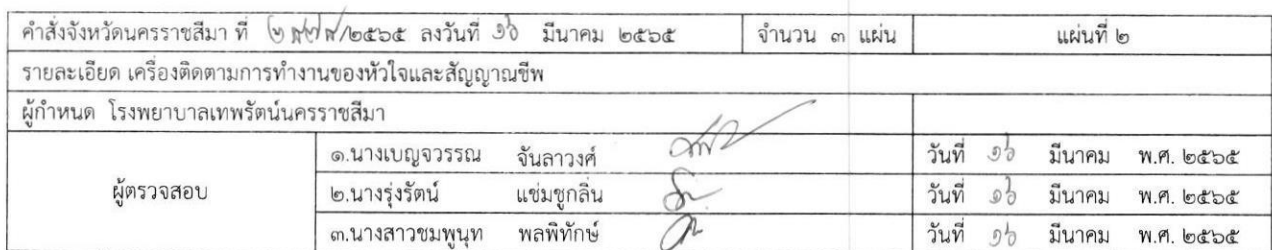 คำสั่งจังหวัดนครราชสีมา ที่ /๒๕๖๕ ลงวันที่ ๑๖ มีนาคม ๒๕๖๕ จำนวน ๓ แผ่น แผ่นที่ ๒
รายละเอียด เครื่องติดตามการทำงานของหัวใจและสัญญาณชีพ
ผู้กำหนด โรงพยาบาลเทพรัตน์นครราชสีมา
ผู้ตรวจสอบ
๑.นางเบญจวรรณ จันลาวงศ์ วันที่ ๑๖ มีนาคม พ.ศ. ๒๕๖๕
๒.นางรุ่งรัตน์ แช่มชูกลิ่น วันที่ ๑๖ มีนาคม พ.ศ. ๒๕๖๕
๓.นางสาวชมพูนุท พลพิทักษ์ วันที่ ๑๖ มีนาคม พ.ศ. ๒๕๖๕